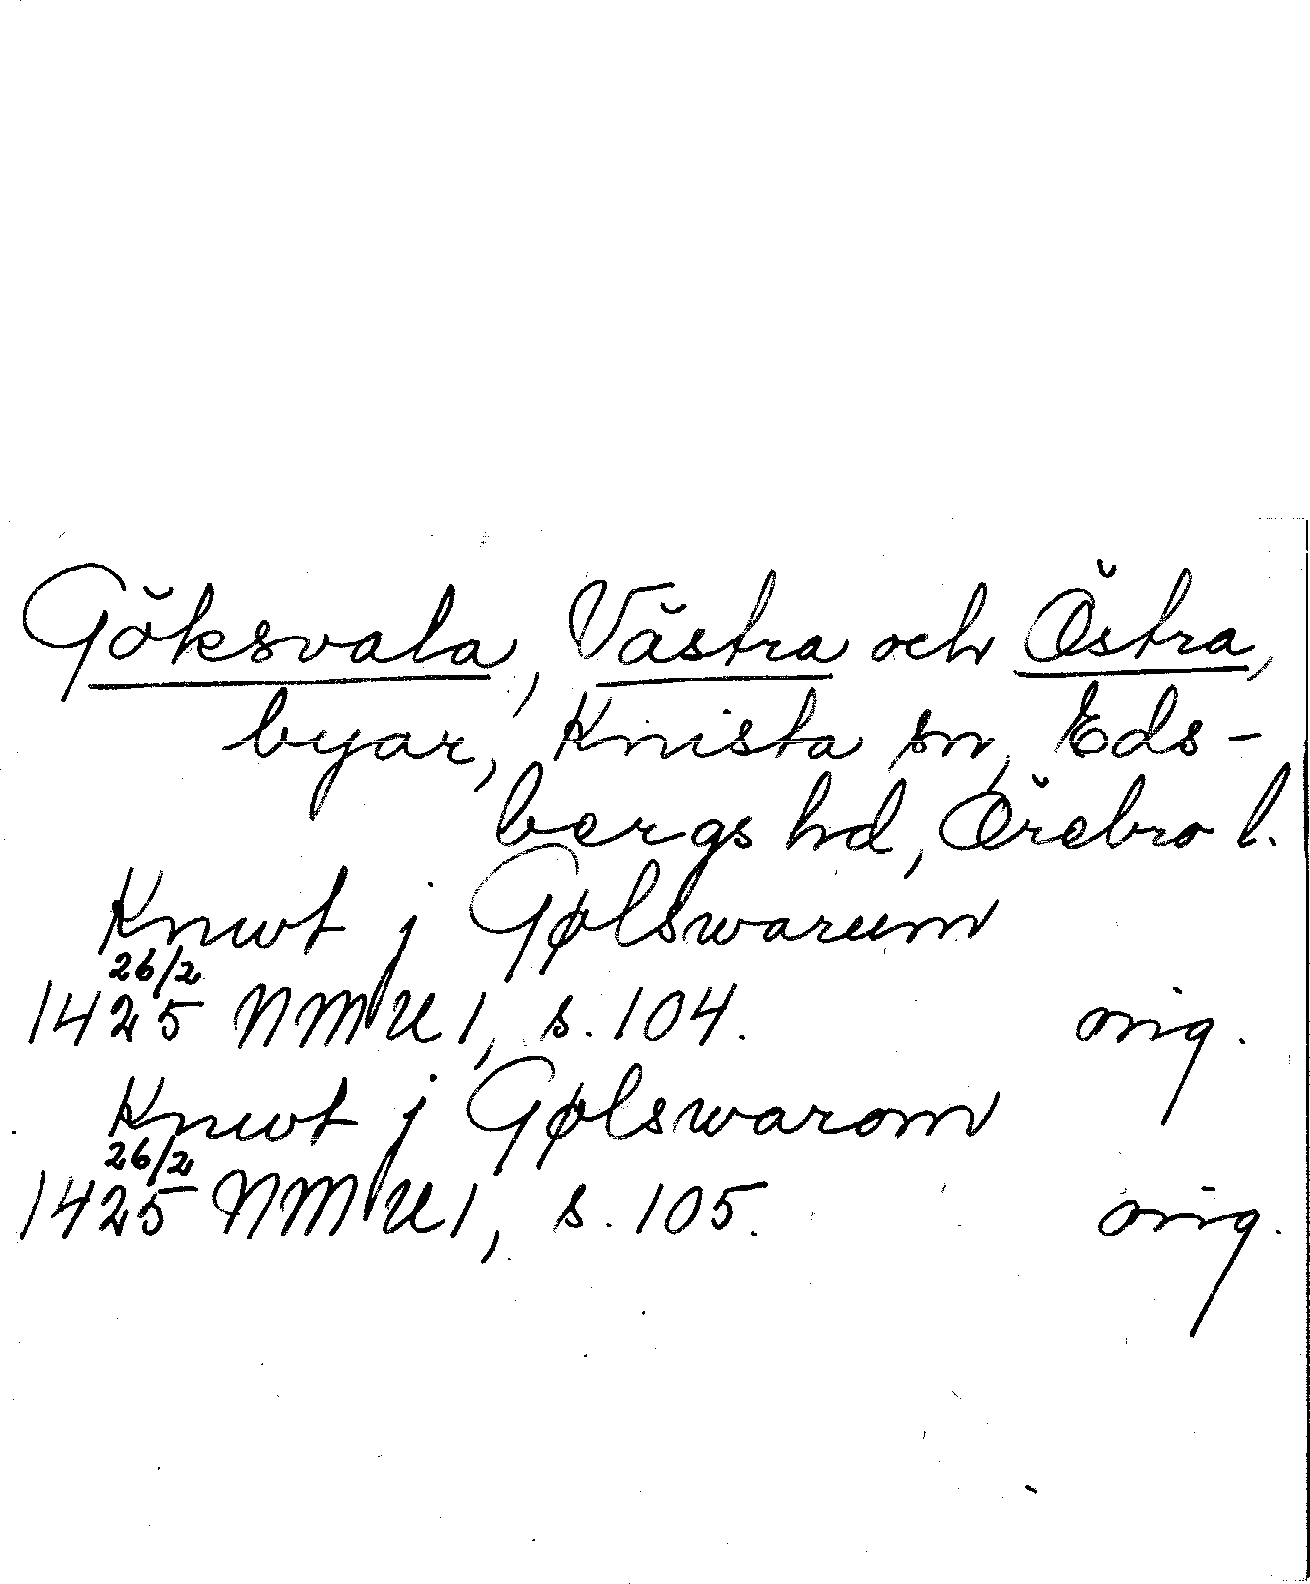 Göksvala, Västra och Östra,
byar, Knista sn, Eds-
bergs hd, Örebro l.
Knwt j Gølswarum
26/2
1425 NMU 1, s. 104. orig.
Knwt j Gølswarom
26/2
1425 NMU 1, s. 105. orig.